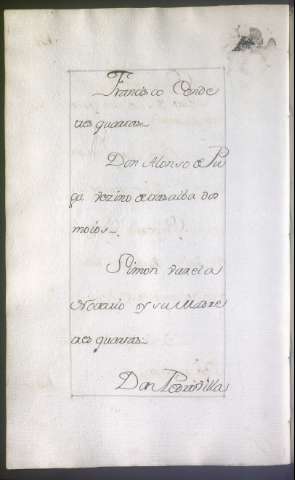 Francisco Conde
tres quartas_
Don Alonso de Pu
ga vezino de casalba dos
moios_
Simon varela
Notario y su Madre
tres quartas_
Don Pedro Villa